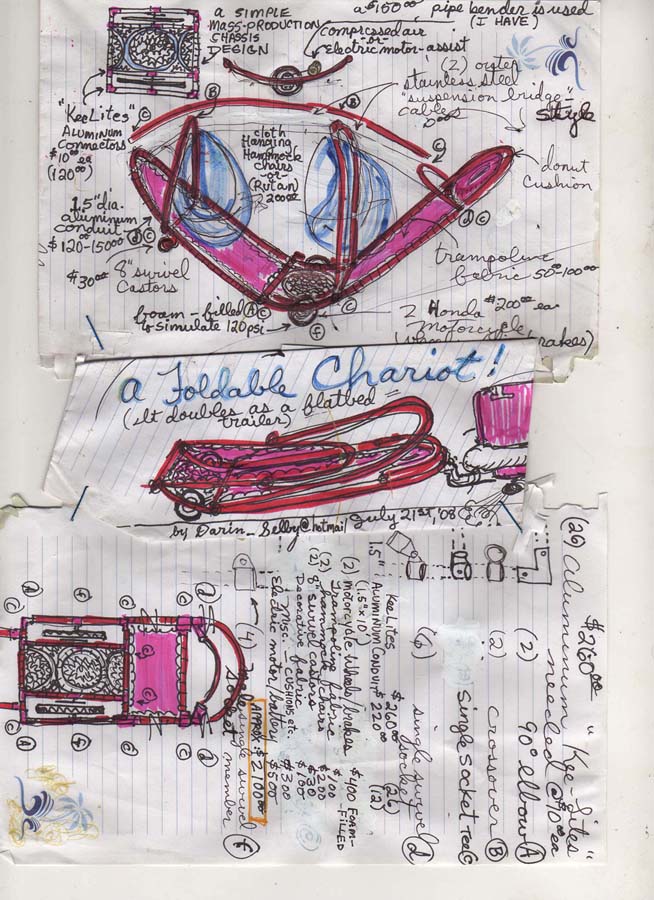 a SIMPLE
MASS-PRODUCTION
CHASSIS
DESIGN
a $150.00 pipe bender is used
(I HAVE)
compressed air
-or-
Electric motor-assist
(2) outer
stainless steel
"suspension bridge-
cables
style
"KeeLites" C
ALUMINUM
Connectors
$10.00 ea
(120.00)
B
B
C
cloth
Hanging
Hammock
chairs
-or-
(Rutan)
200.00
donut
Cushion
1.5" dia.
aluminum
conduit
$120-150.00
d C
d C
$30.00
8" swivel
Castors
trampoline
fabric 50.00-100.00
foam-filled A C
to simulate 120 psi
C
f
2 Honda $200.00 ea
Motorcycle
brakes)
a Foldable Chariot!
(It doubles as a flatbed
trailer)
by Darin_Selby@hotmail July 21st, '08
$260.00
(26) aluminum "Kee-lites"
needed @ $10.00 ea
(2) 90° elbow A
(2) crossover B
single socket tea C
(6) single swivel
socket d
KeeLites $260.00 (26)
1.5" ALUMINUM CONDUIT $220 (12)
(1.5" x 10')
(2) Motorcycle Wheels/brakes $400 FOAM-FILLED
Trampoline fabric $100
(2) Hammock chairs $200
(2) 8" Swivel castors $30
Decorative fabric $100
Misc. CUSHIONS etc. $300
Electric motor/battery $500
APPROX: $2100.00
(4) single swivel
socket member f